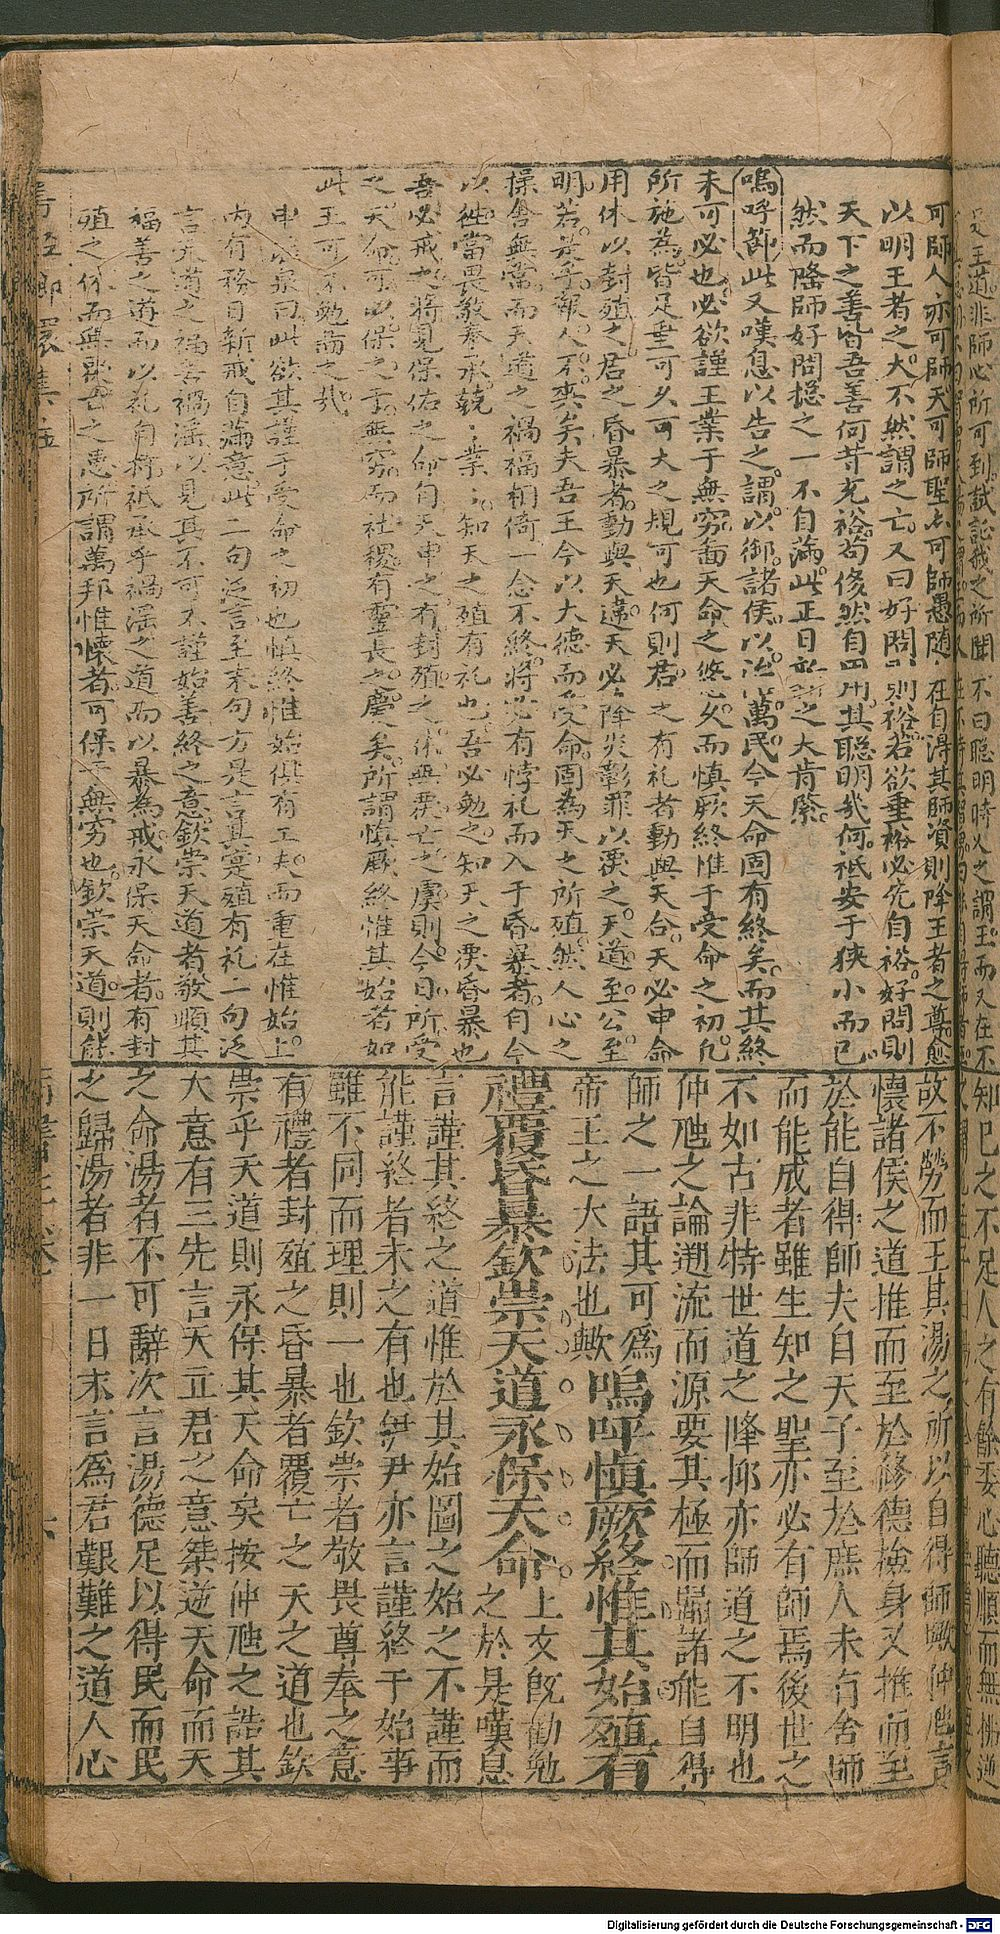 可師人亦可師天可師聖亦可師愚隨〻在自得其師資則降王者之尊愈
以明王者之大不然謂之亡又曰好問則裕若欲垂裕必先自裕好問則
天下之善皆吾善何等充裕苟侈然自用其聰明幾何祇安于狹小而已
然而隆師好問總之一不自滿此正日新之大肯綮
嗚呼節此又嘆息以告之謂以御諸侯以治萬民今天命固有終矣而其終
未可必也必欲謹王業于無窮面天命之悠久而慎厥終惟于受命之初凡
所施為皆足垂可久可大之規可也何則君之有礼者動與天合天必申命
用休以封殖之君之昏暴者動與天違天必降災彰罪以覆之天道至公至
明若是乎報人不爽矣夫吾王今以大德而受命固為天之所殖然人心之
操舍無常而天道之禍福相倚一念不終將必有悖礼而入于昏暴者自今
以徃當畏敬奉承兢〻業〻知天之殖有礼也吾必勉之知天之覆昏暴也
吾必戒之將見保佑之命自天申之有封殖之休無覆亡之虞則今日所受
之天命可以保之于無窮而社稷有靈長之慶矣所謂慎厥終惟其始者如
此王可不勉旃之哉
申以泉曰此欲其謹于受命之初也慎終惟始俱有工夫而重在惟始上
内有務日新戒自滿意此二句泛言至末句方是言其寔殖有礼一句泛
言天道之福善禍滛以見其不可不謹始善終之意欽崇天道者敬順其
福善之道而以礼自持祗承乎禍滛之道而以暴為戒永保天命者有封
殖之休而無之患所謂萬邦惟懷者可保于無窮也欽崇天道則能
故不勞而王其湯之所以自得師歟仲虺言
懷諸侯之道推而至於修德檢身又推而至
於能自得師夫自天子至於庶人未有舍師
而能成者雖生知之聖亦必有師焉後世之
不如古非特世道之降抑亦師道之不明也
仲虺之論遡流而源要其極而歸諸能自得
師之一語其可爲
帝王之大法也歟嗚呼慎厥終惟其始殖有
禮覆昏暴欽崇天道永保天命上文既勸勉
之於是嘆息
言謹其終之道惟於其始圖之始之不謹而
能謹終者未之有也伊尹亦言謹終于始事
雖不同而理則一也欽崇者敬畏尊奉之意
有禮者封殖之昏暴者覆亡之天之道也欽
崇乎天道則永保其天命矣按仲虺之誥其
大意有三先言天立君之意桀逆天命而天
之命湯者不可辭次言湯德足以得民而民
之歸湯者非一日末言爲君艱難之道人心
Digitalisierung gefördert durch die Deutsche Forschungsgemeinschaft - DFG